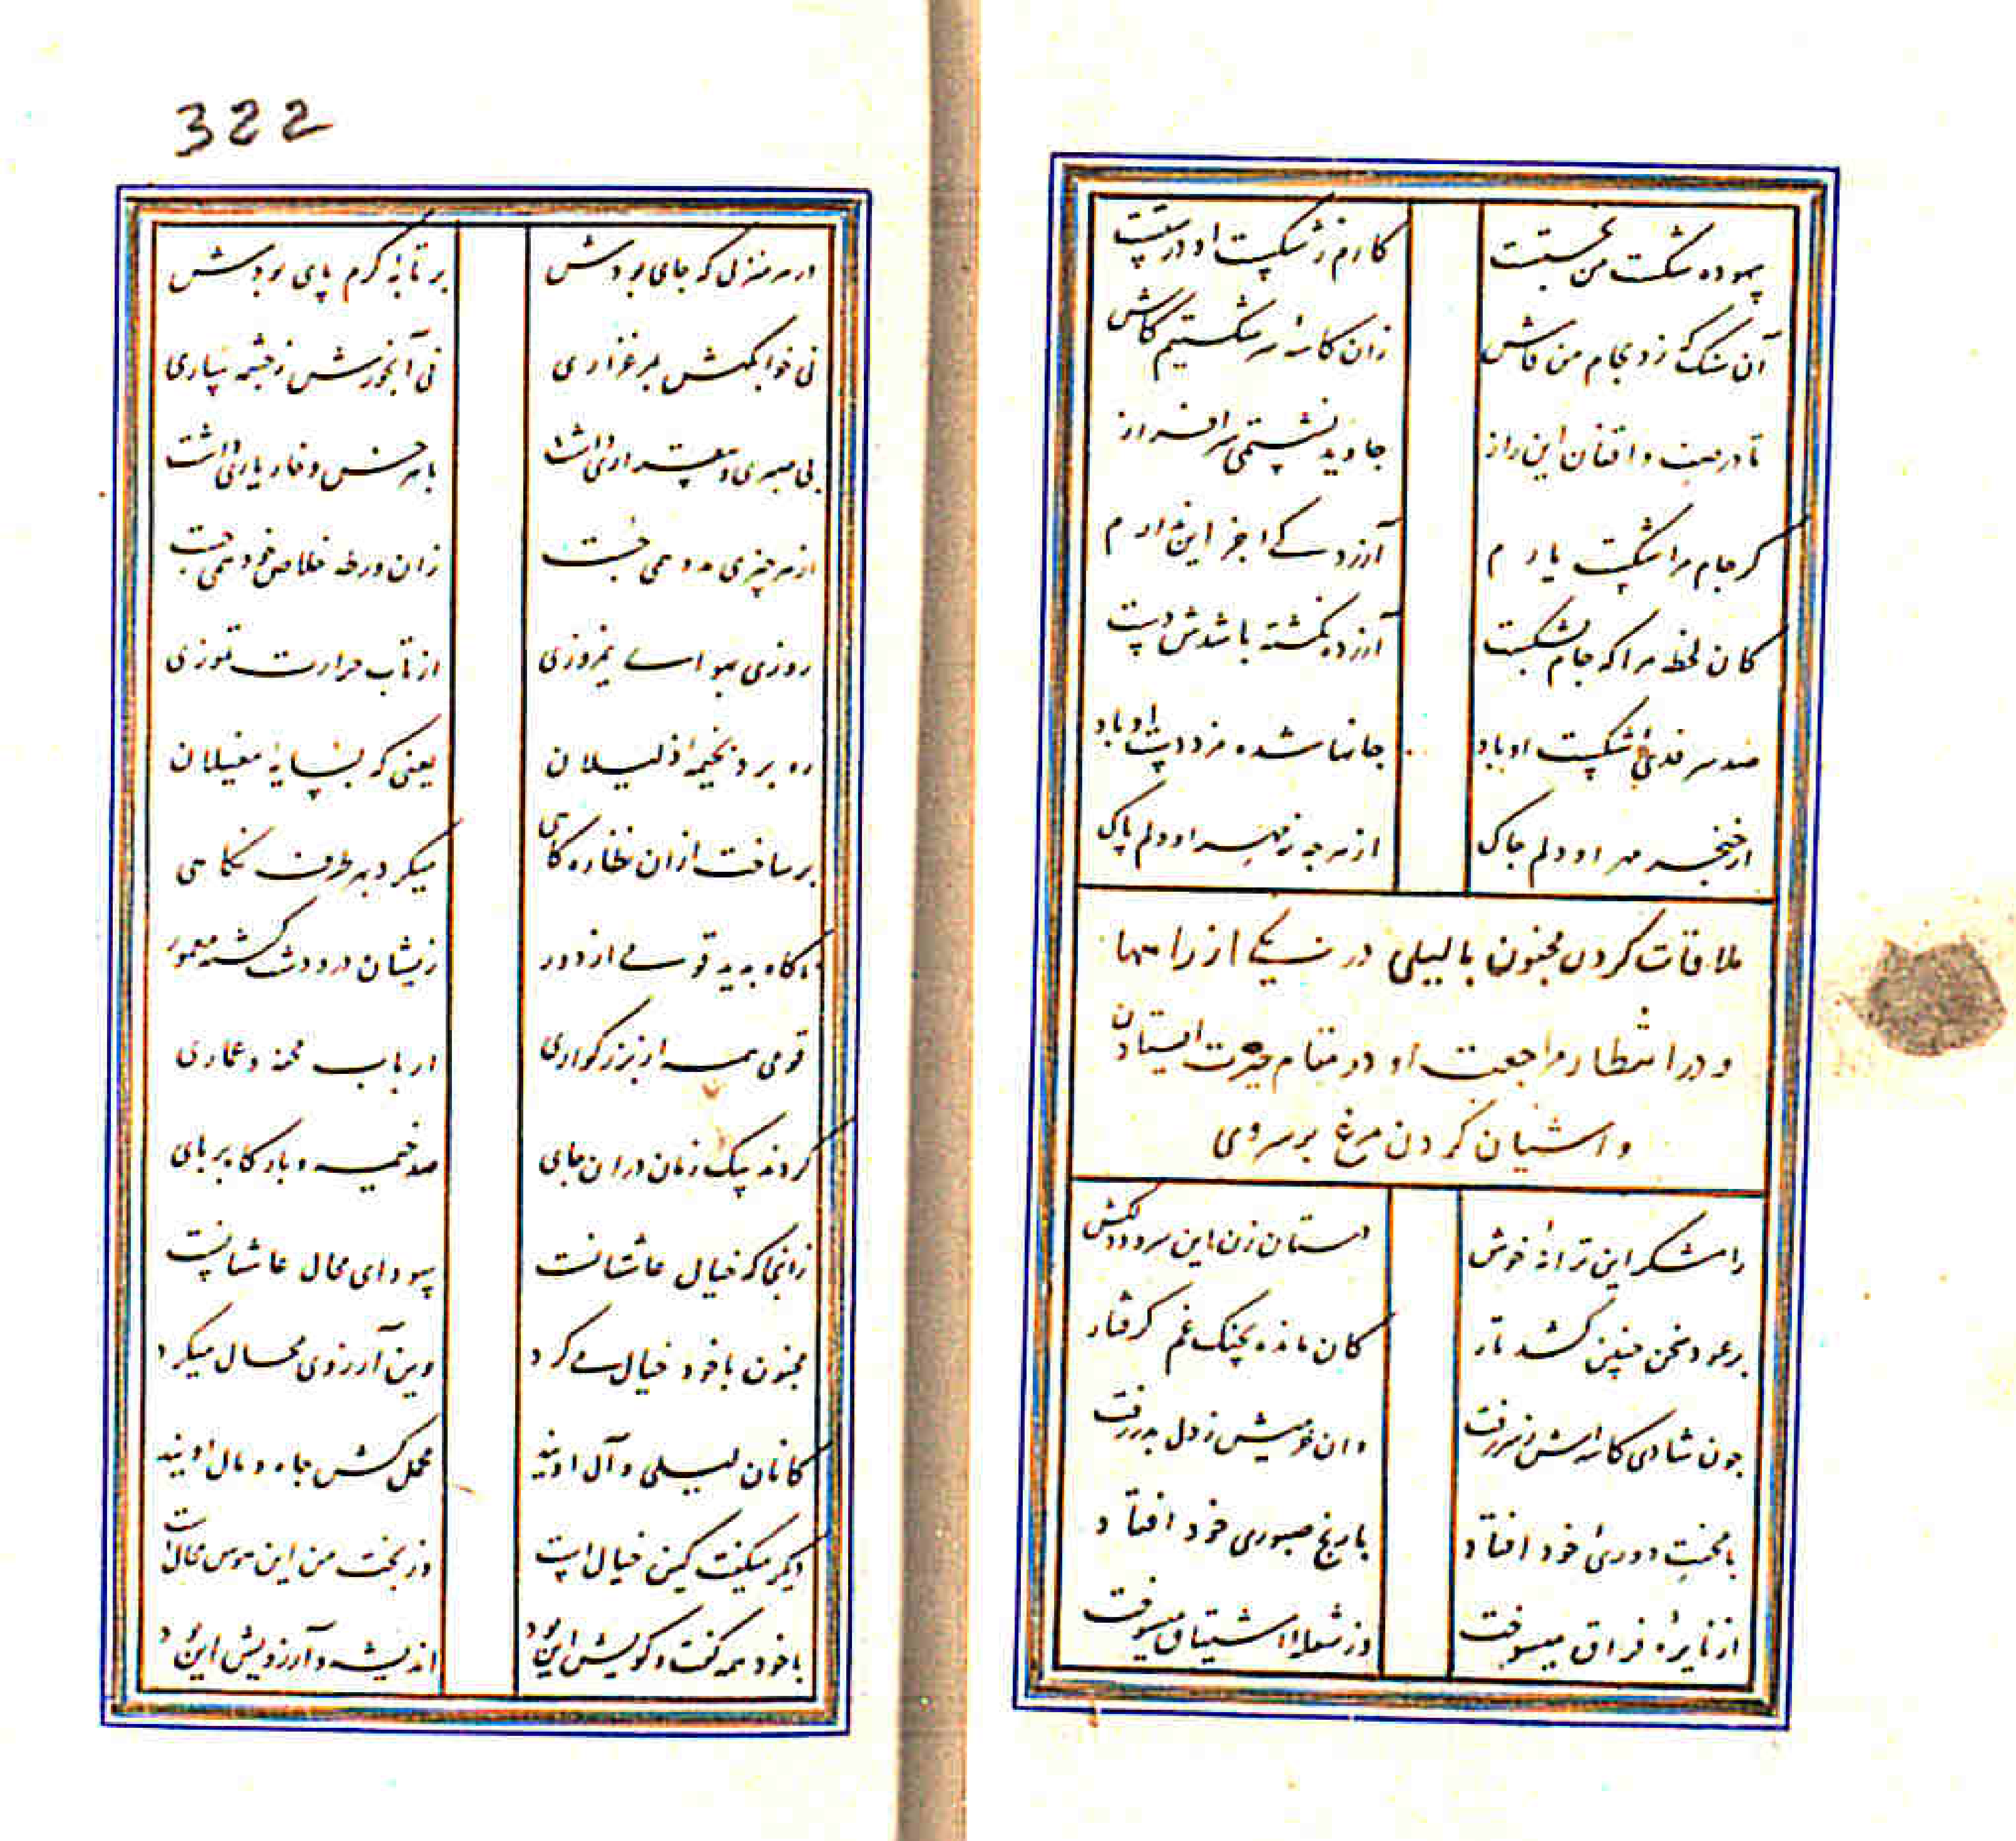 322
بیهوده شکست من نجستست
کارم ز شکست او درستست
آن سنگ که زد بجام من فاش
زان کاسهٔ سر شکستیم کاش
تا در صف واقفان این راز
جاوید نشستمی سرافراز
گر جام مرا شکست یارم
آزردگی جز این ندارم
کان لحظه مرا که جام بشکست
آزرده نگشته باشدش دست
صد سر فدی شکست او باد
جانها شده مزد دست او باد
از خنجر مهر او دلم چاک
از هر چه نه مهر او دلم پاک
ملاقات کردن مجنون با لیلی در یکی از راهها
و در انتظار مراجعت او در مقام حیرت ایستادن
و آشیان کردن مرغ بر سر وی
رامشگر این ترانهٔ خوش
دستان زن این سرود دلکش
بر عود سخن چنین کشد تار
کان مانده بچنگ غم گرفتار
چون شادی کانهاش ز سر رفت
وان خرمیش ز دل بدر رفت
با محنت دوری خود افتاد
با رنج صبوری خود افتاد
از نایرهٔ فراق میسوخت
وز شعلهٔ اشتیاق میسوخت
در هر منزل که جای بودش
بر تابهٔ گرم پای بودش
نی خوابگهش بمرغزاری
نی آبخورش ز چشمه ساری
بی صبری و بیقراری داشت
با هر خس و خار یاری داشت
از هر چیزی مدد همی جست
زان ورطه خلاص خود همی جست
روزی بهوای نیمروزی
از تاب حرارت تموزی
ره برد بخیمهٔ ذلیلان
یعنی که بسایهٔ مغیلان
بر ساخت ازان نظاره گاهی
میکرد بهر طرف نگاهی
ناگاه بدید قومی از دور
زیشان در و دشت گشته معمور
قومی همه از بزرگواری
ارباب محفه و عماری
کردند بیک زمان دران جای
صد خیمه و بارگاه بر پای
زانجا که خیال عاشقانست
سودای محال عاشقانست
مجنون با خود خیال می کرد
وین آرزوی محال میکرد
کانان لیلی و آل اویند
محمل کش جاه و مال اویند
دیگر میگفت کین خیالست
وز بخت من این هوس محالست
با خود همه گفت و گویش این بود
اندیشه و آرزویش این بود